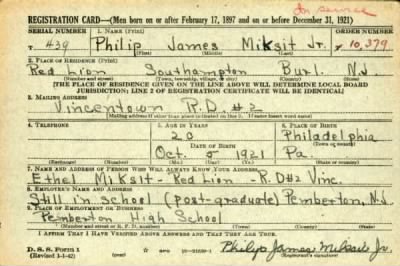 In service
REGISTRATION CARD—(Men born on or after February 17, 1897 and on or before December 31, 1921)
SERIAL NUMBER 1. NAME (Print) ORDER NUMBER
T 439 Philip James Miksit Jr. 10,379
(First) (Middle) (Last)
2. PLACE OF RESIDENCE (Print)
Red Lion Southampton Burl. N.J.
(Number and street) (Town, township, village, or city) (County) (State)
[THE PLACE OF RESIDENCE GIVEN ON THE LINE ABOVE WILL DETERMINE LOCAL BOARD
JURISDICTION; LINE 2 OF REGISTRATION CERTIFICATE WILL BE IDENTICAL]
3. MAILING ADDRESS
Vincentown R.D. #2
[Mailing address if other than place indicated on line 2. If same insert word same]
4. TELEPHONE 5. AGE IN YEARS 6. PLACE OF BIRTH
20 Philadelphia
DATE OF BIRTH (Town or county)
Oct. 5 1921 Pa.
(Exchange) (Number) (Mo.) (Day) (Yr.) (State or country)
7. NAME AND ADDRESS OF PERSON WHO WILL ALWAYS KNOW YOUR ADDRESS
Ethel Miksit - Red Lion - R.D#2 Vinc.
8. EMPLOYER'S NAME AND ADDRESS
Still in school (post-graduate) Pemberton, N.J.
9. PLACE OF EMPLOYMENT OR BUSINESS
Pemberton High School
(Number and street or R. F. D. number) (Town) (County) (State)
I AFFIRM THAT I HAVE VERIFIED ABOVE ANSWERS AND THAT THEY ARE TRUE.
D. S. S. FORM 1
(Revised 1-1-42) Philip James Miksit Jr.
(Registrant's signature)